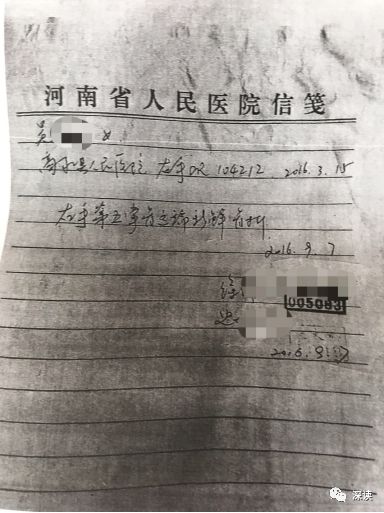 河南省人民医院信笺
吴 女
商水县人民医院 左手DR 104212 2016.3.15
左手第五掌骨远端 骨折
2016.9.7
徐
005083
2016.9.7
深读